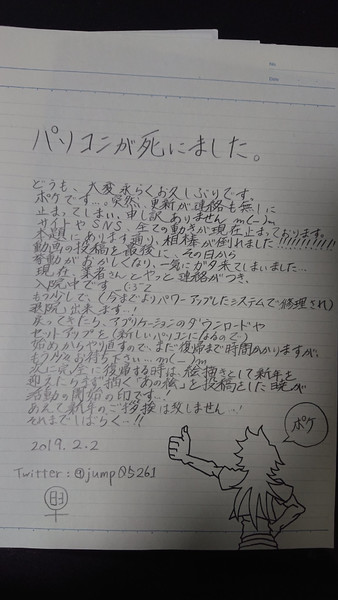 パソコンが死にました。
どうも、大変永らくお久しぶりです。
ポケです…。突然、更新が連絡も無しに
止まってしまい、申し訳ありません m(_ _)m
サイトやSNS、全ての動きが現在止まっております。
本題にあります通り、相棒が倒れました!!!!!!!!!!!
動画の投稿を最後に、その日から
挙動がおかしくなり、一気にガタ来てしまいました…
現在、業者さんとやっと連絡がつき、
入院中です
もう少しで、(今までよりパワーアップしたシステムで修理され)
退院出来ます…!
戻ってきたら、アプリケーションのダウンロードや
セットアップを(新しいパソコンになるので)
始めからやり直すので、まだ復帰まで時間かかりますが、
もう少々お待ち下さい…m(_ _)m
次に完全に復帰する時は、絵描きとして新年を
迎えたらまず描く「あの絵」を投稿をした暁が
活動の開始の印です…!
あえて新年のご挨拶は致しません…!
それまでしばらく…!!
2019.2.2
ポケ
Twitter:@jump05261